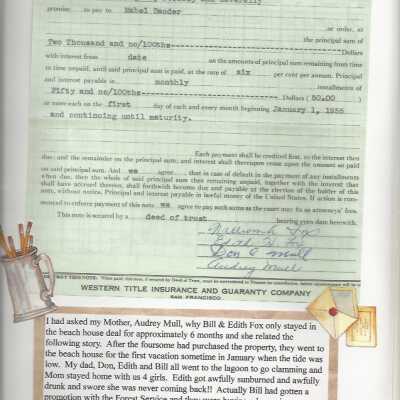 promise to pay to Mabel Dander
, or order, at
the principal sum of
Two Thousand and no/100ths--------Dollars
with interest from date on the amounts of principal sum remaining from time
to time unpaid, until said principal sum is paid, at the rate of six per cent per annum. Principal
and interest payable in monthly
Fifty and no/100ths--------Dollars ( 50.00 )
or more each on the first day of each and every month beginning January 1, 1956
and continuing until maturity.
Each payment shall be credited first, to the interest then
due; and the remainder on the principal sum; and interest shall thereupon cease upon the amount so paid
on said principal sum. And we agree that in case of default in the payment of any installments
when due, then the whole of said principal sum then remaining unpaid, together with the interest that
shall have accrued thereon, shall forthwith become due and payable at the election of the holder of this
note, without notice. Principal and interest payable in lawful money of the United States. If action is com-
menced to enforce payment of this note we agree to pay such sums as the court may fix as attorneys' fees.
This note is secured by a deed of trust bearing even date herewith.
William Fox
Edith Fox
Don Mull
Audrey Mull
THIS NOTE:
WESTERN TITLE INSURANCE AND GUARANTY COMPANY
SAN FRANCISCO
I had asked my Mother, Audrey Mull, why Bill & Edith Fox only stayed in
the beach house deal for approximately 6 months and she related the
following story. After the foursome had purchased the property, they went to
the beach house for the first vacation sometime in January when the tide was
low. My dad, Don, Edith and Bill all went to the lagoon to go clamming and
Mom stayed home with us 4 girls. Edith got awfully sunburned and awfully
drunk and swore she was never coming back!! Actually Bill had gotten a
promotion with the Forest Service and they were